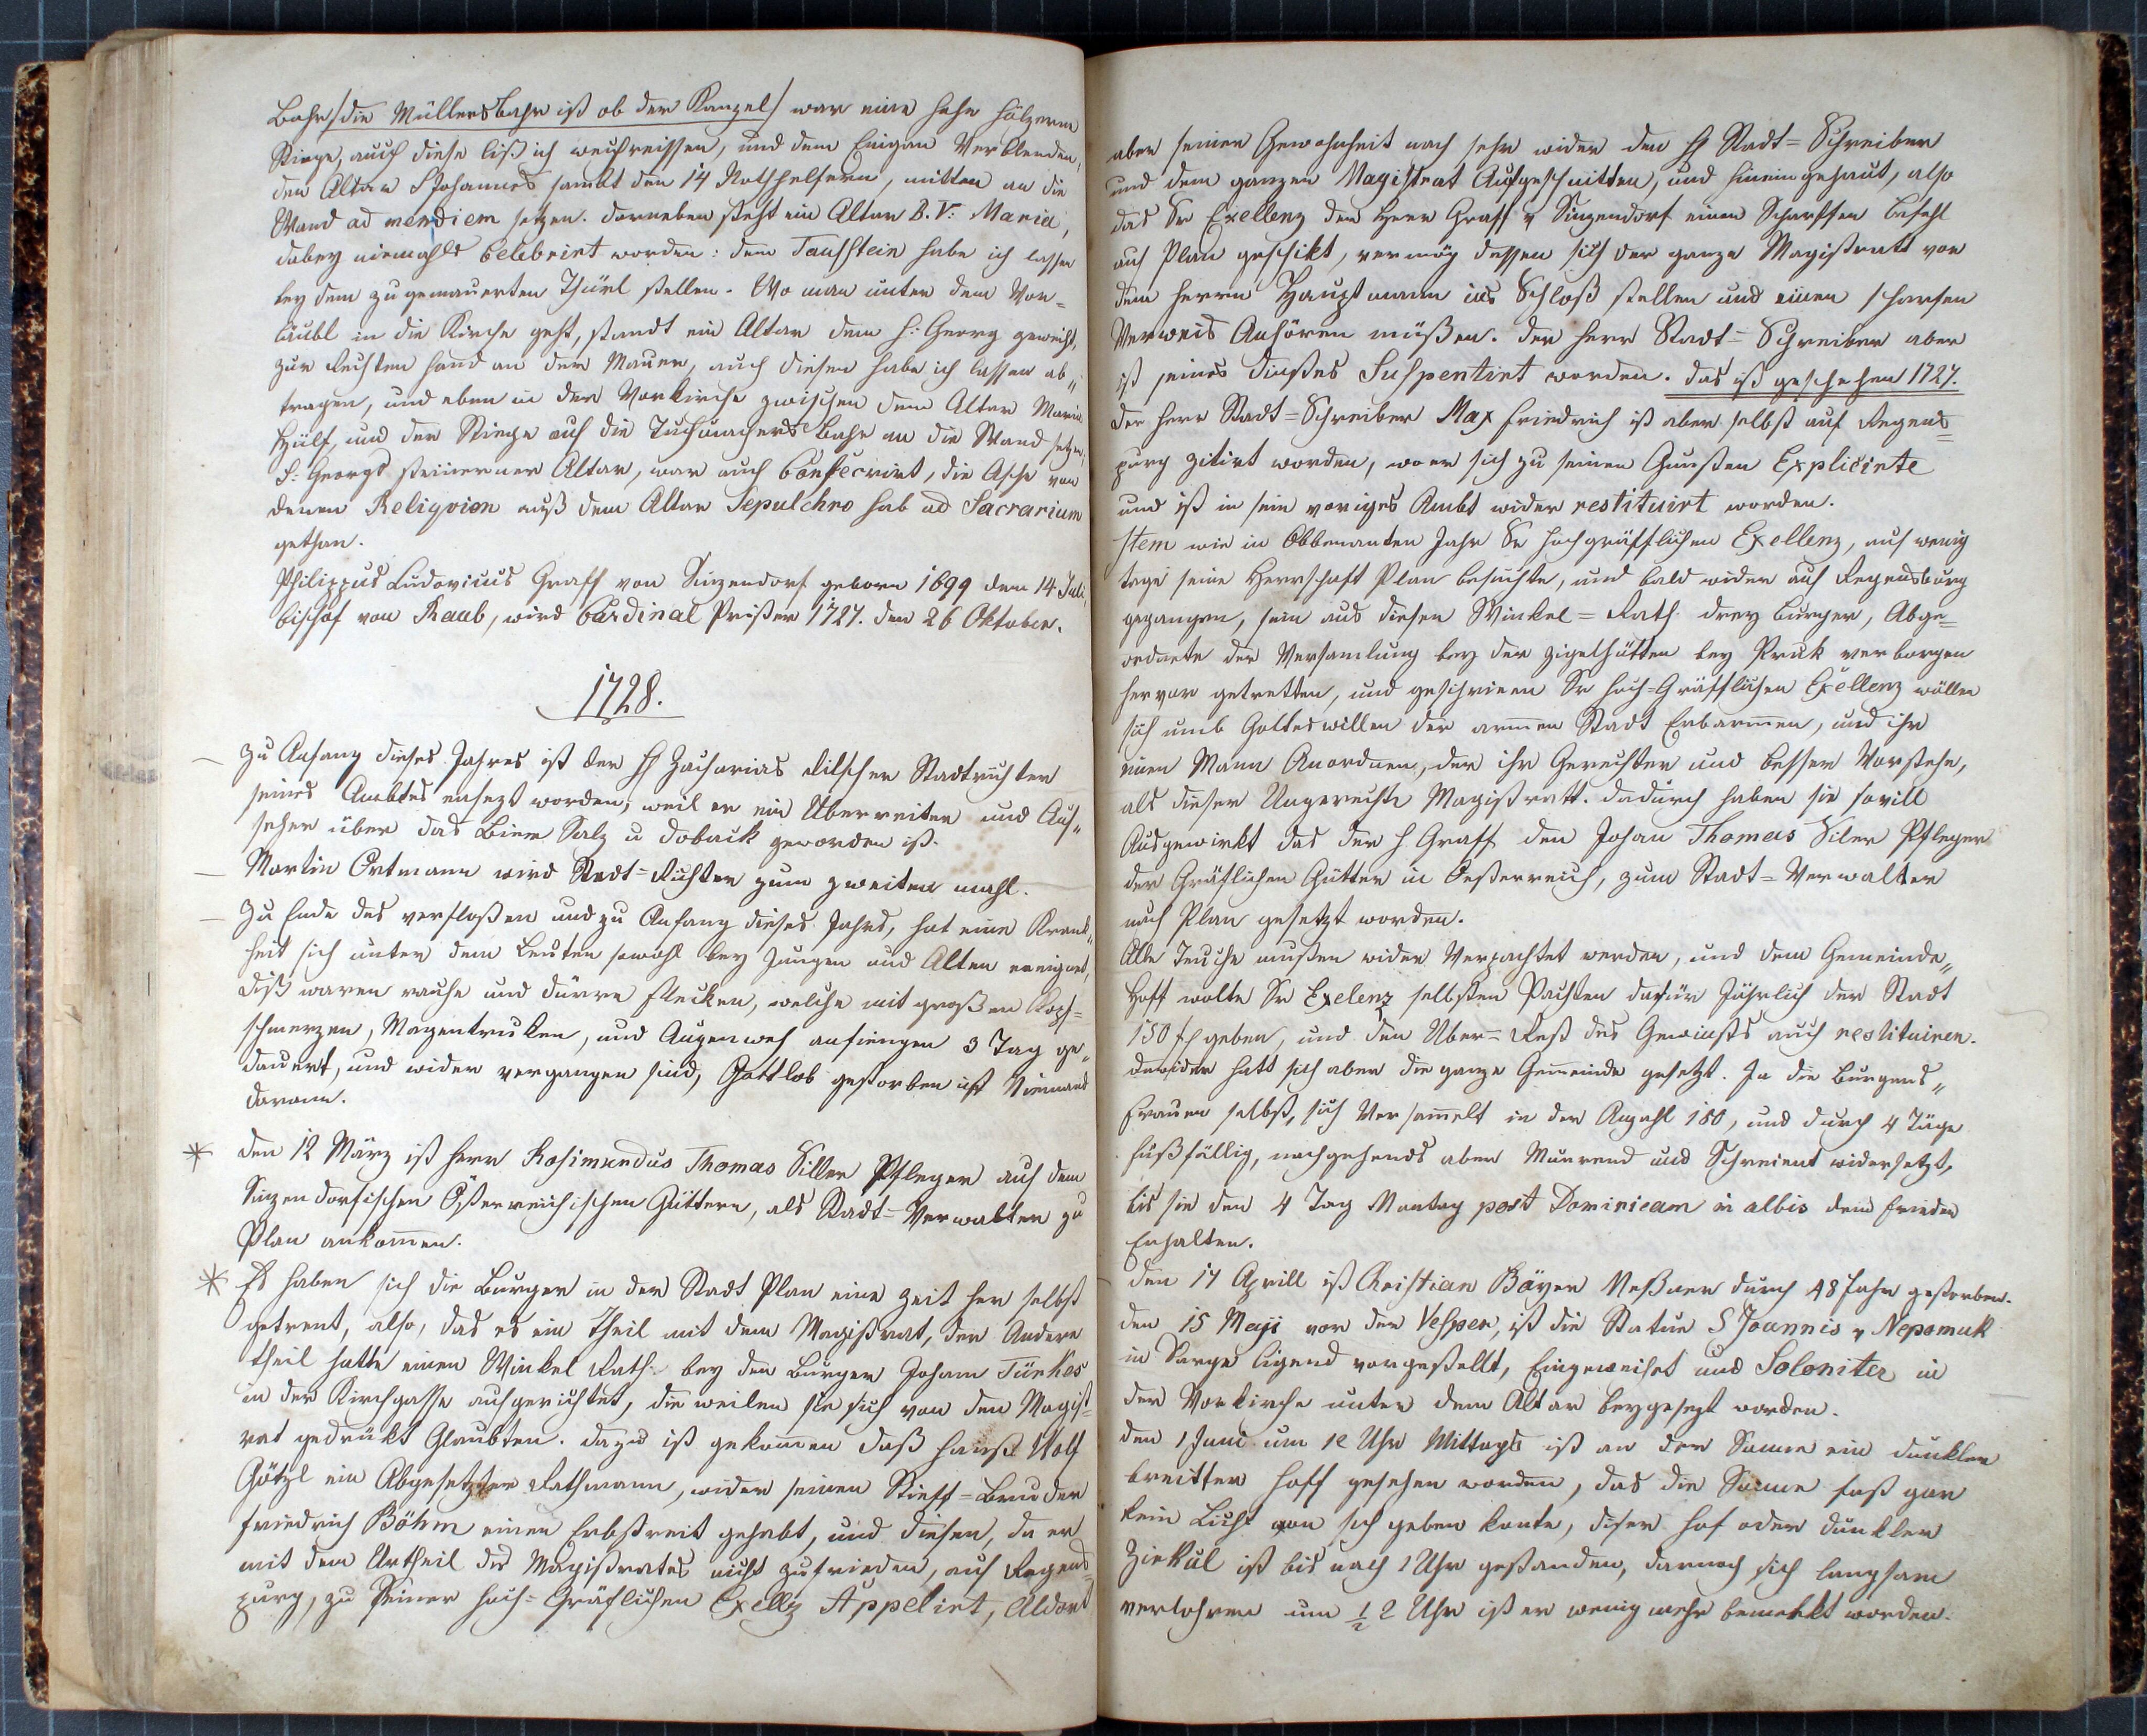 Bahr /die Müllersbahr ist ob der Kanzel/ war eine hohe hölzerne
Stiege, auch diese liß ich weckreissen, und den Eingan Verblenden,
den Altar S Johannes sambt den 14 Nothhelfern, mitten an die
Wand ad meridiem setzen. darneben steht ein Altar B. V: Maria,
dabey niemahls Celebrirt worden: den Taufstein habe ich lassen
bey dem zugemauerten Thürl stellen. Wo man unter dem Vor-
läubl in die Kirche geht, standt ein Altar dem h: Georg geweicht,
zur Rechten hand an der Mauer, auch diesen habe ich lassen ab„
tragen, und eben in der Vorkirche zwischen dem Altar Maria
Hülf, und der Stiege auf die Tuchmachers Bahr an die Wand setzen,
S: Georgs steinerner Altar, war auch Consecrirt, die Asche von
denen Reliqvien auß dem Altar Sepulchro hab ad Sacrarium
gethan.
Philippus Ludovicus Graff von Sinzendorf geborn 1699 den 14 Juli,
bischof von Raab, wird Cardinal Prister 1727. den 26 Oktober.
1728.
Zu Anfang dieses Jahres ist der H Zacharias Kilscher Stadtrichter
seines Ambtes ensezt worden, weil er ein Überreiter und Auf„
seher über das Bier Salz u Doback geworden ist.
Martin Ortmann wird Stadt=Richter zum zweiten mahl.
Zu Ende des verfloßen und zu Anfang dieses Jahrs, hat eine Krank„
heit sich unter dem Leuten sowohl bey Jungen und Alten ereignet,
diß waren rauhe und dürre flecken, welche mit großen Kopf=
schmerzen, Magentruken, und Augenweh anfiengen 3 Tag ge„
dauert, und wider vergangen sind, Gottlob gestorben ist Niemand
daran.
* den 12 März ist Herr Rosimundus Thomas Siller Pfleger auf dem
Sinzendorfischen Österreichischen Güttern, als Stadt=Verwalter zu
Plan ankommen.
* Es haben sich die Bürger in der Stadt Plan eine Zeit her selbst
getrent, also, das es ein Theil mit dem Magistrat, der Andere
theil hatte einen Winkel Rath bey den Bürger Johann Türkes
in der Kirchgasse aufgerichtet, die weilen sie sich von den Magist=
rat gedrükt Glaubten. dazu ist gekommen daß Hanß Wolf
Götzl ein Abgesetzter Rathmann, wider seinen Stieff=Bruder
Friedrich Böhm einen Erbstreit gehabt, und diesen, da er
mit dem Urtheil des Magistrates nicht zufrieden, auf Regens=
purg, zu Seiner Hoch=Gräflichen Exellz Appelirt, Aldort
aber seiner Gewohnheit nach sehr wider den H Stadt=Schreiber
und dem ganzen Magistrat Aufgeschnitten, und hineingehaut, also
das Sr Exellenz der Herr Graff v Sinzendorf einen Scharffen befehl
auf Plan geschikt, vermög dessen sich der ganze Magistratt vor
dem Herrn Hauptmann ins Schloß stellen und einen scharfen
Verweis Anhören müßen. der Herr Stadt=Schreiber aber
ist seines dinstes Suspentirt worden. das ist geschehen 1727.
der Herr Stadt=Schreiber Max Friedrich ist aber selbst auf Regens=
purg zitirt worden, wo er sich zu seinen Gunsten Explicirte
und ist in sein voriges Ambt wider restituirt worden.
Item wie in Obbenanten Jahr Sr Hochgräfflichen Exellenz, auf wenig
tage seine Herrschaft Plan besuchte, und bald wider auf Regensburg
gegangen, sein aus diesen Winkel=Rath drey Burger, Abge=
ordnete der Versamlung bey der Zigelhütten bey Bruk verborgen
hervor getretten, und geschrieen Sr Hoch=Gräfflichen Exellenz wöllen
sich umb Gotteswillen der armen Stadt Erbarmen, und ihr
einen Mann Anordnen, der ihr Gerechter und besser Vorstehe,
als dieser Ungerechte Magistratt. dadurch haben sie sovill
Ausgewirkt das der H Graff den Johan Thomas Siler Pfleger
der Gräflichen Gütter in Oesterreich, zum Stadt=Verwalter
nach Plan gesetzt worden.
Alle Teuche musten wider Verpachtet werden, und dem Gemeinde„
Hoff wolte Sr Exelenz selbsten Pachten dafür Jährlich der Stadt
150 f geben, und den Uber=Rest des Gewinsts auch restituiren.
dawider hatt sich aber die ganze Gemeinde gesetzt. Ja die Burgers„
Frauen selbst, sich Versammelt in der Anzahl 150, und durch 4 Täge
fußfällig, nachgehends aber Murrend und Schreient widersetzt,
bis sie den 4 Tag Montag post Dominicam in albis dein Frieden
Erhalten.
den 17 Aprill ist Kristian Bäyer Meßner durch 48 Jahr gestorben.
den 15 Maji vor der Vesper, ist die Statue S Joannis v Nepomuk
in Sarge ligend vorgestellt, Eingeweihet und Soleniter in
der Vorkirche unter dem Altar beygesezt worden.
den 1 Juni um 12 Uhr Mittags ist an der Sonne ein dunkler
breitter Hoff gesehen worden, das die Sonne fast gar
kein Licht von sich geben konte, diser Hof oder dunkler
Zirkul ist bis nach 1 Uhr gestanden, darnach sich langsam
verlohren um ½ 2 Uhr ist er wenig mehr bemerkt worden.